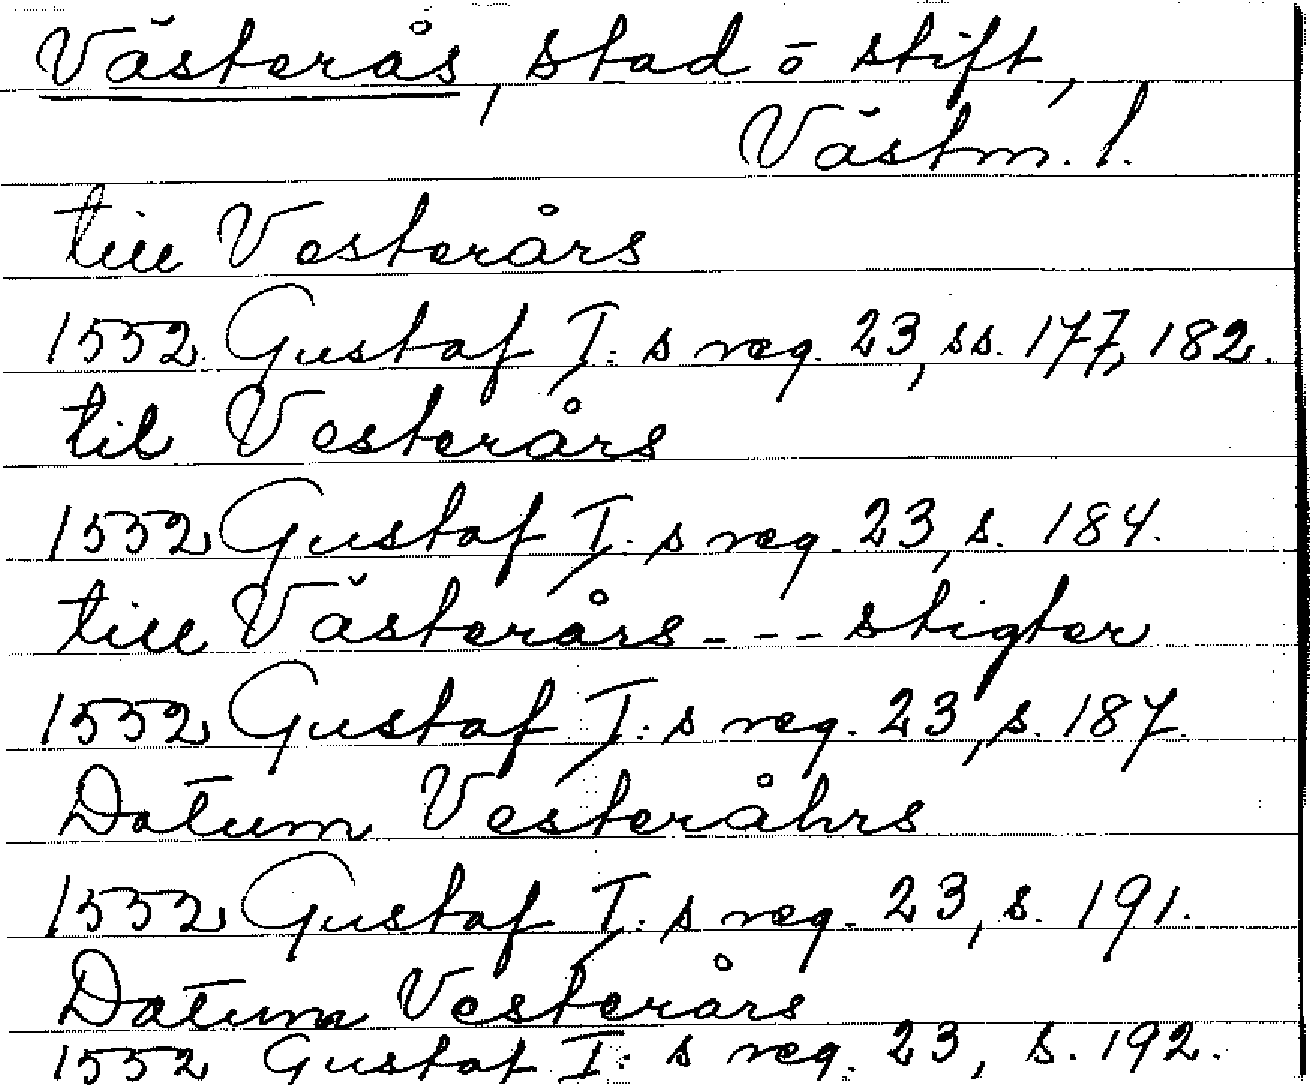 Västerås, stad o stift,
Västm. l.
till Vesterårs
1552 Gustaf I: s reg. 23, ss. 177, 182.
til Vesterårs
1552 Gustaf I: s reg. 23, s. 184.
till Västerårs - - - stigter
1552 Gustaf I: s reg. 23, s. 187.
Datum Vesteråhrs
1552 Gustaf I: s reg. 23, s. 191.
Datum Vesterårs
1552 Gustaf I: s reg. 23, s. 192.